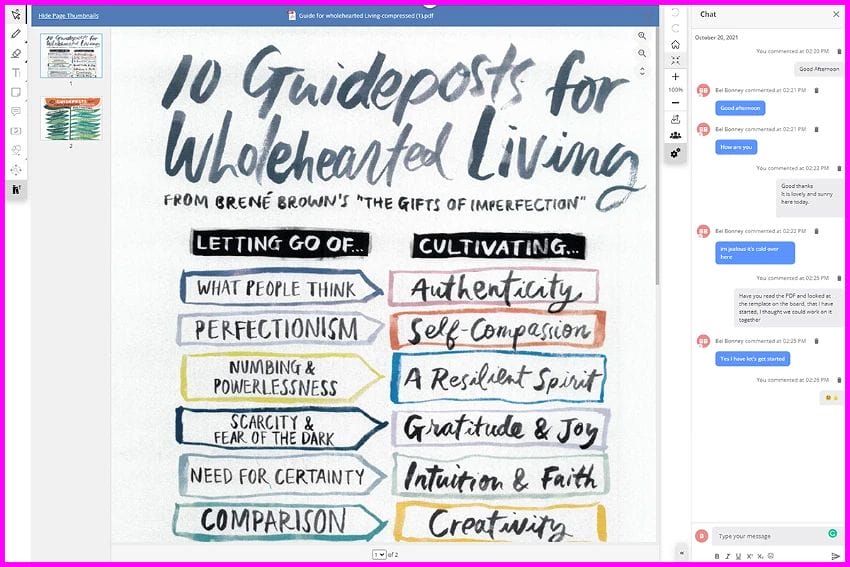 Hide Page Thumbnails
Guide for wholehearted Living-compressed (1).pdf
1
2
10 Guideposts for
Wholehearted Living
FROM BRENÉ BROWN'S "THE GIFTS OF IMPERFECTION"
LETTING GO OF... CULTIVATING...
WHAT PEOPLE THINK Authenticity
PERFECTIONISM Self-Compassion
NUMBING &
POWERLESSNESS A Resilient Spirit
SCARCITY &
FEAR OF THE DARK Gratitude & Joy
NEED FOR CERTAINTY Intuition & Faith
COMPARISON Creativity
1 of 2
100%
Chat
October 20, 2021
You commented at 02:20 PM
Good Afternoon
Bel Bonney commented at 02:21 PM
Good afternoon
Bel Bonney commented at 02:21 PM
How are you
You commented at 02:22 PM
Good thanks
It is lovely and sunny
here today.
Bel Bonney commented at 02:22 PM
im jealous it's cold over
here
You commented at 02:25 PM
Have you read the PDF and looked at
the template on the board, that I have
started, I thought we could work on it
together
Bel Bonney commented at 02:25 PM
Yes I have let's get started
You commented at 02:26 PM
Type your message
B I U